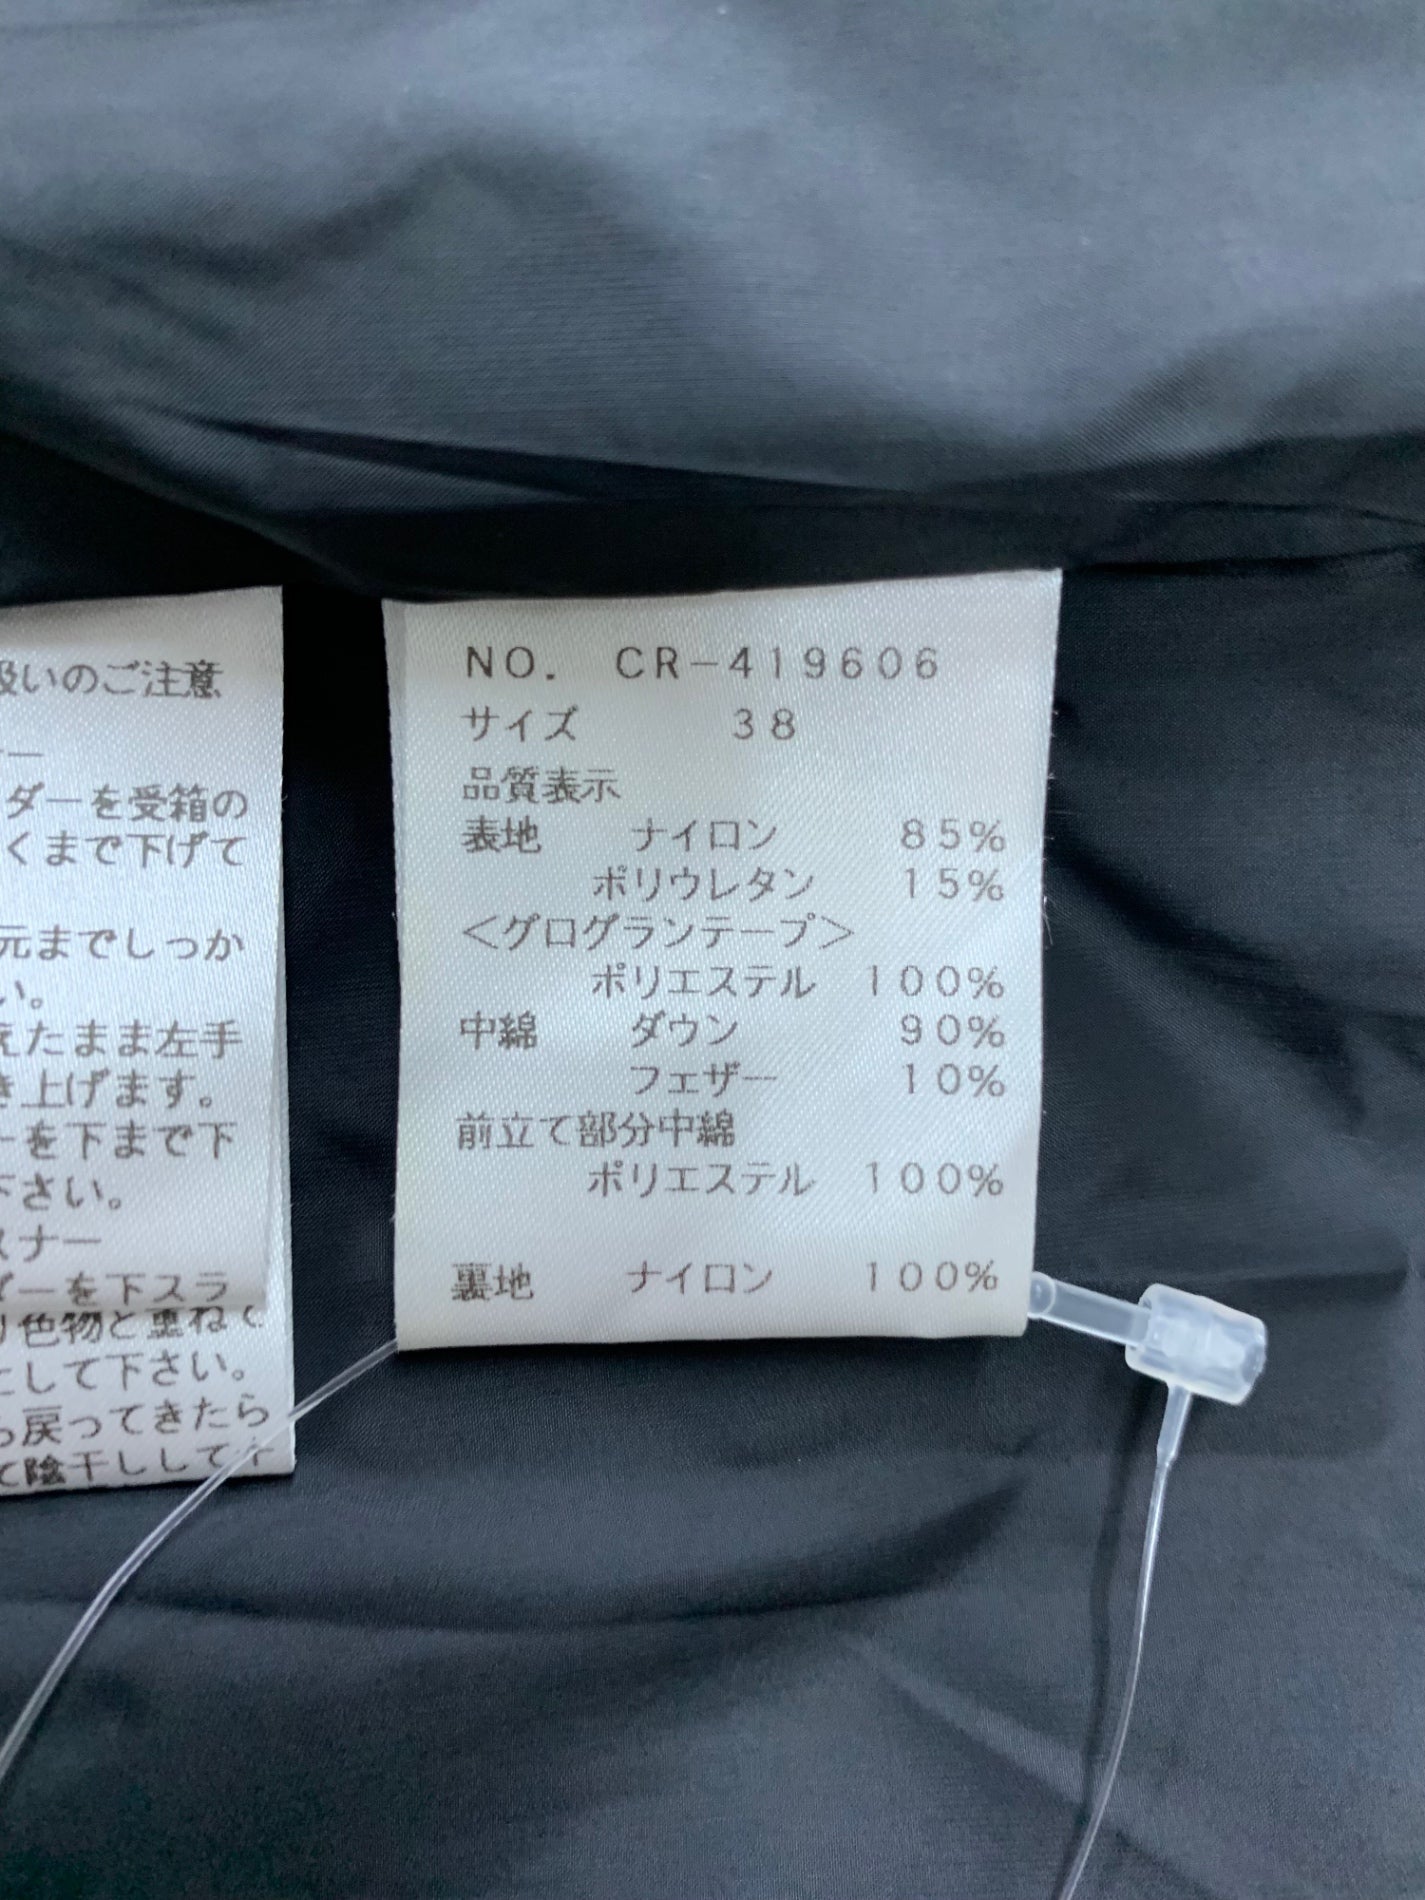 扱いのご注意
ダーを受箱の
くまで下げて
元までしっか
い。
えたまま左手
き上げます。
ーを下まで下
下さい。
スナー
ダーを下スラ
り色物と重ねて
にして下さい。
ら戻ってきたら
て陰干しして下
NO. CR-419606
サイズ 38
品質表示
表地 ナイロン 85%
ポリウレタン 15%
<グログランテープ>
ポリエステル 100%
中綿 ダウン 90%
フェザー 10%
前立て部分中綿
ポリエステル 100%
裏地 ナイロン 100%